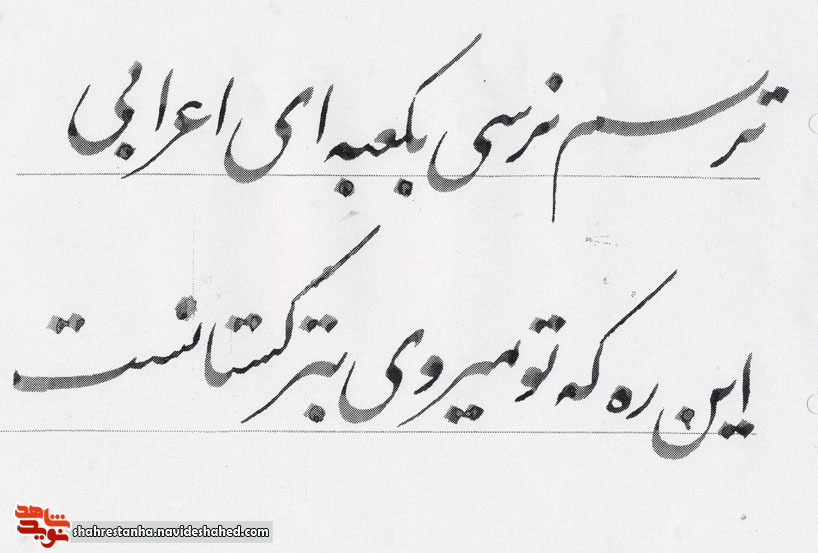 ترسم نرسی بکعبه ای اعرابی
این ره که تو میروی بترکستانست
نوید شاهد
shahrestanha.navideshahed.com